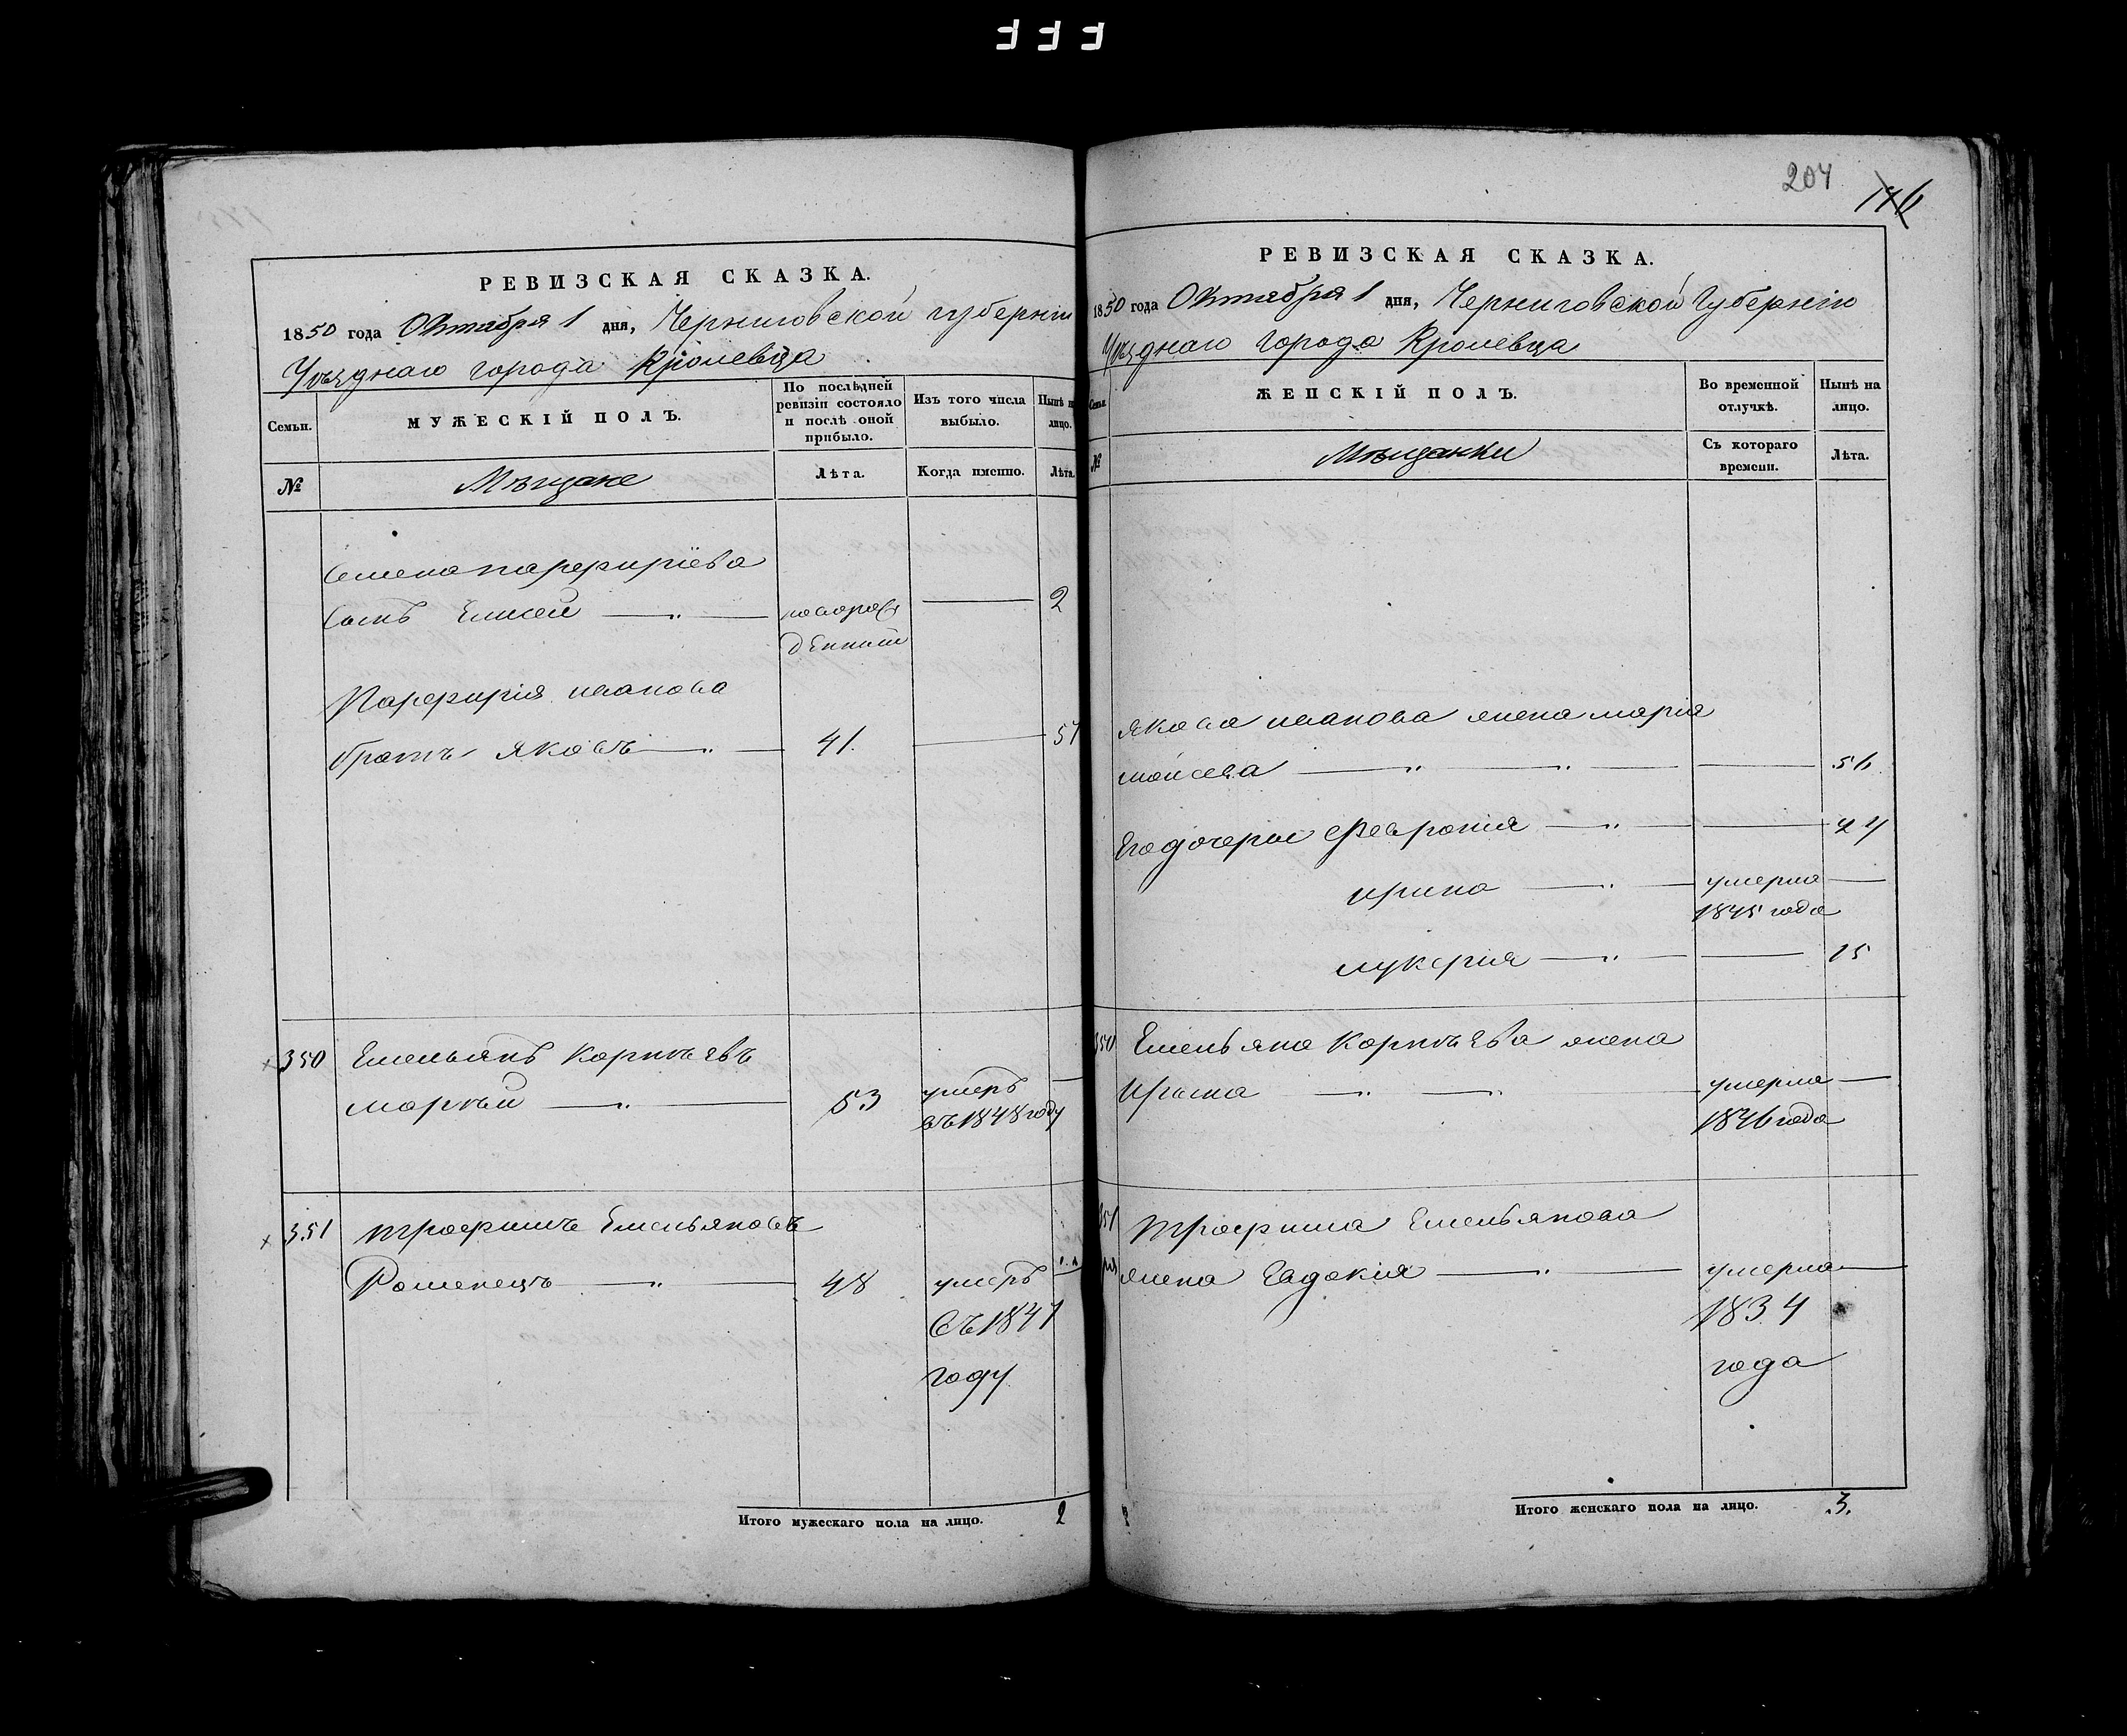 204
146
РЕВИЗСКАЯ СКАЗКА.
1850 года Октября 1 дня, Черниговской губерніи
Уѣзднаго города Кролевца
Семьи.
МУЖЕСКІЙ ПОЛЪ.
По послѣдней ревизіи состояло и послѣ оной прибыло.
Изъ того числа выбыло.
Нынѣ на лицо.
№
Мѣщане
Лѣта.
Когда именно.
Лѣта.
Семена Парфиріева
сынъ Елисей — „ — новорож — 2
денный
Парфирія иванова
братъ яковъ — „ — 41. — 51
350 Емельянъ Корнѣевъ
53 умеръ —
въ 1848 году
351 трофимъ Емельяновъ
Роменецъ — „ — 48 умеръ —
въ 1847
году
Итого мужескаго пола на лицо. 2
РЕВИЗСКАЯ СКАЗКА.
1850 года Октября 1 дня, Черниговской Губерніи
Уѣзднаго города Кролевца
Семьи.
ЖЕНСКІЙ ПОЛЪ.
Во временной отлучкѣ.
Нынѣ на лицо.
№
Мѣщанки
Съ котораго времени.
Лѣта.
якова иванова жена марія
моисева — „ — „ — — 56
Его дочери Феврония — „ — — 24
ирина — „ — умерла —
1845 года
лукерия — „ — — 15
350 Емельяна Корнѣева жена
— „ — „ — умерла —
1846 года
351 Трофима Емельянова
жена Евдокия — „ — умерла —
1834
года
Итого женскаго пола на лицо. .3.